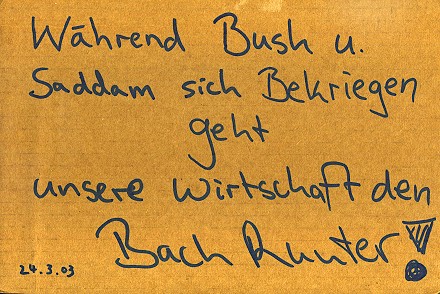 Während Bush u.
Saddam sich Bekriegen
geht
unsere Wirtschaft den
Bach Runter!
24.3.03